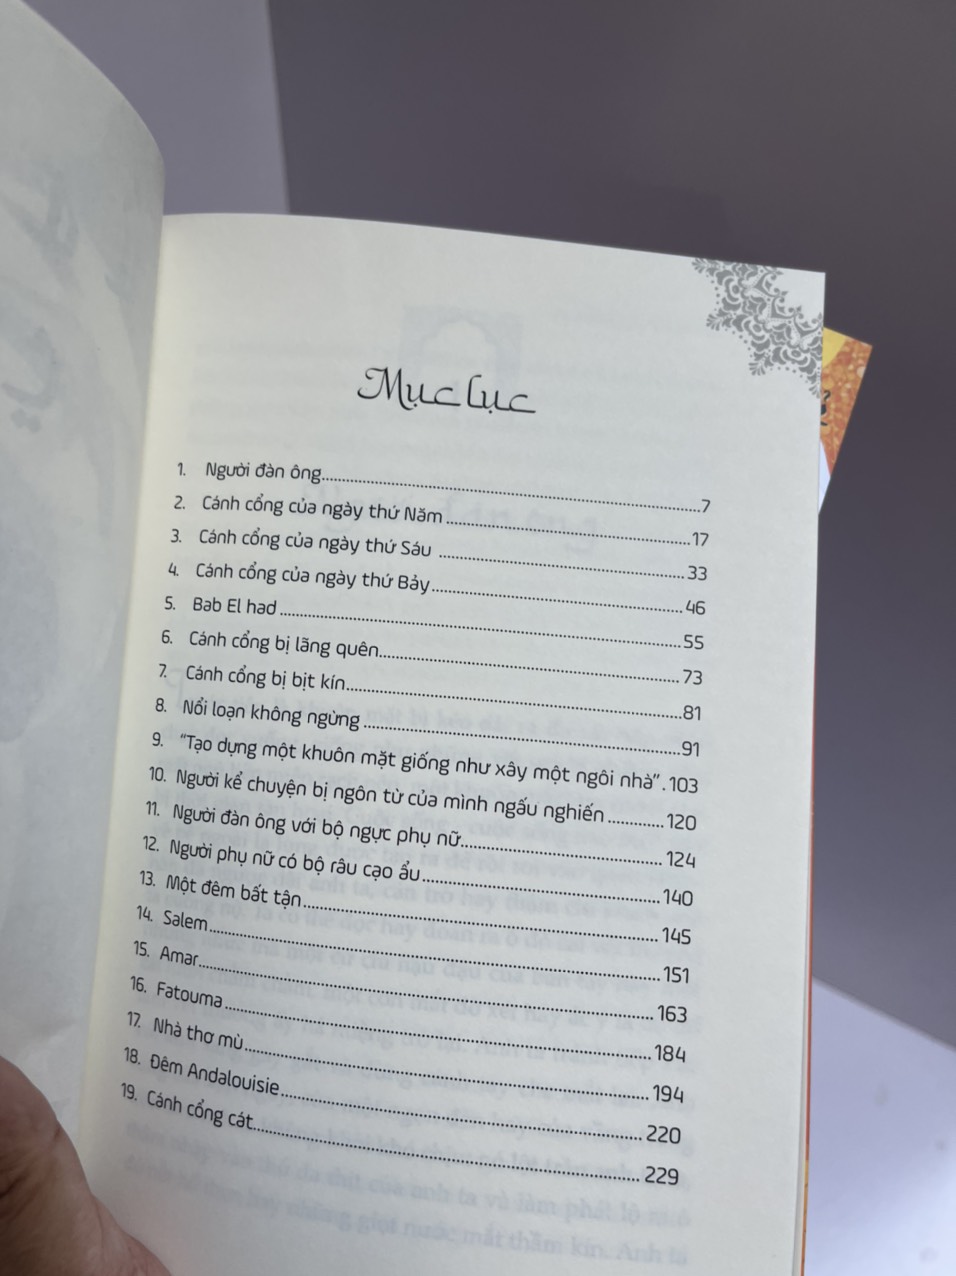 Mục lục
1. Người đàn ông..........7
2. Cánh cổng của ngày thứ Năm..........17
3. Cánh cổng của ngày thứ Sáu..........33
4. Cánh cổng của ngày thứ Bảy..........46
5. Bab El had..........55
6. Cánh cổng bị lãng quên..........73
7. Cánh cổng bị bịt kín..........81
8. Nổi loạn không ngừng..........91
9. "Tạo dựng một khuôn mặt giống như xây một ngôi nhà".103
10. Người kể chuyện bị ngôn từ của mình ngấu nghiến..........120
11. Người đàn ông với bộ ngực phụ nữ..........124
12. Người phụ nữ có bộ râu cạo ẩu..........140
13. Một đêm bất tận..........145
14. Salem..........151
15. Amar..........163
16. Fatouma..........184
17. Nhà thơ mù..........194
18. Đêm Andalouisie..........220
19. Cánh cổng cát..........229